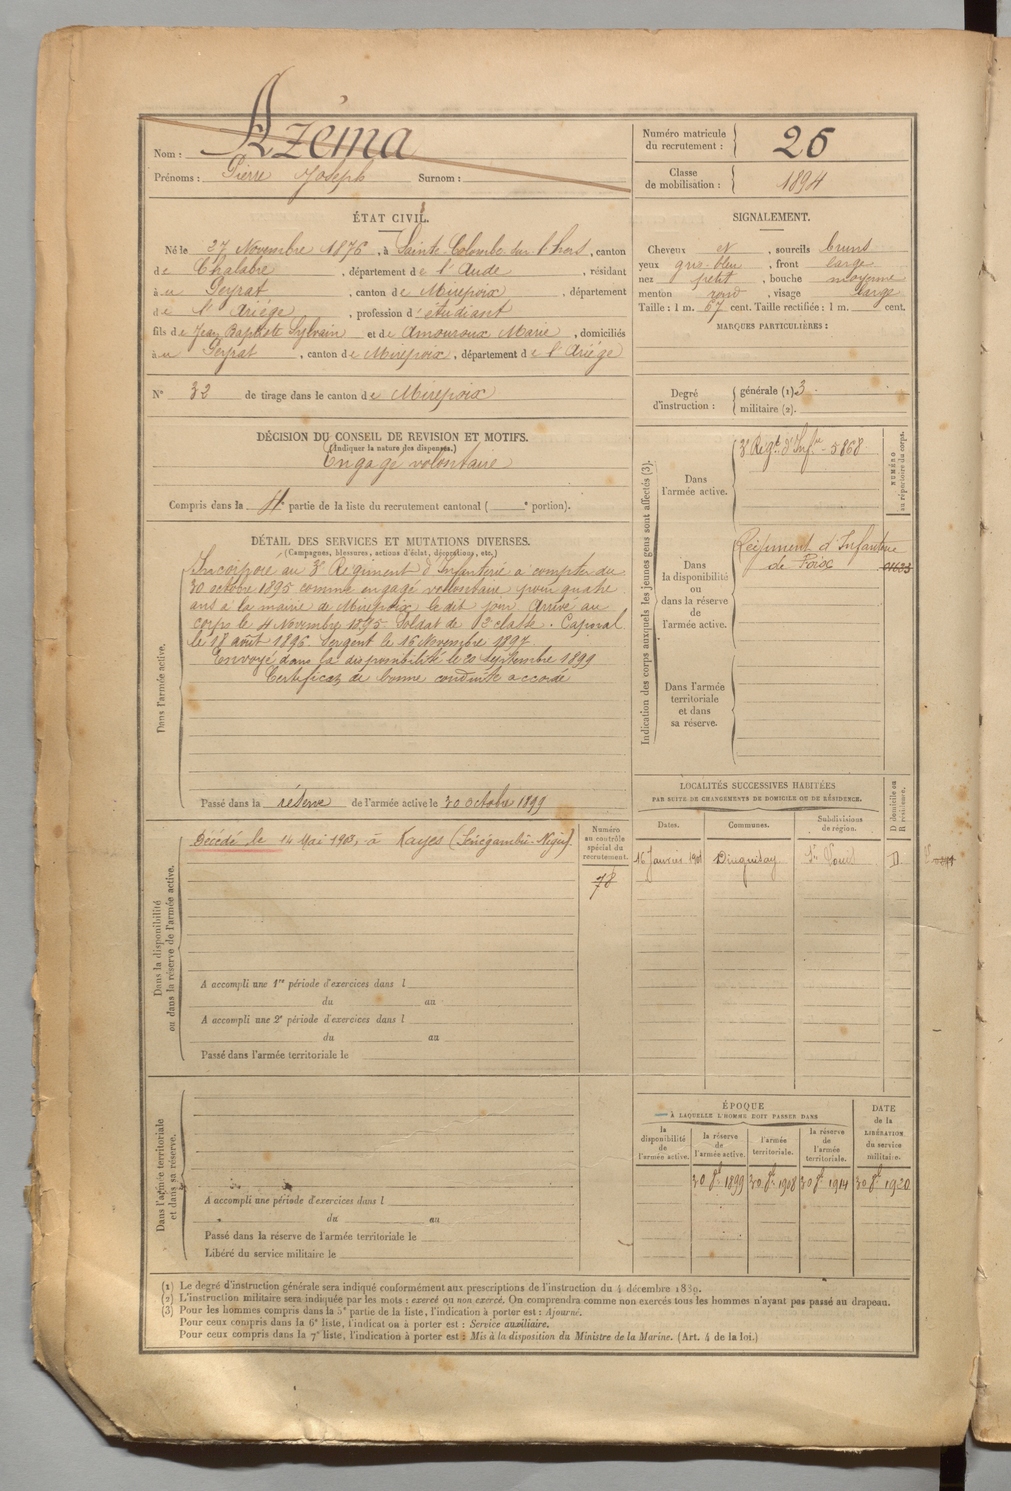 Nom : Azéma
Prénoms : Pierre Joseph Surnom :
Numéro matricule du recrutement : 26
Classe de mobilisation : 1894
ÉTAT CIVIL.
Né le 27 Novembre 1876, à Sainte Colombe sur l'hers, canton
de Chalabre, département de l'Aude, résidant
à Peyrat, canton de Mirepoix, département
de l'Ariège, profession d'étudiant
fils de Jean Baptiste Sylvain et de Amouroux Marie, domiciliés
à Peyrat, canton de Mirepoix, département de l'Ariège
SIGNALEMENT.
Cheveux et, sourcils bruns
yeux gris-bleu, front large
nez petit, bouche moyenne
menton rond, visage large
Taille : 1 m. 67 cent. Taille rectifiée : 1 m. cent.
MARQUES PARTICULIÈRES :
N° 32 de tirage dans le canton de Mirepoix
Degré d'instruction : générale (1) 3
militaire (2).
DÉCISION DU CONSEIL DE REVISION ET MOTIFS.
(Indiquer la nature des dispenses.)
Engagé volontaire
Compris dans la 4e partie de la liste du recrutement cantonal ( e portion).
DÉTAIL DES SERVICES ET MUTATIONS DIVERSES.
(Campagnes, blessures, actions d'éclat, décorations, etc.)
Dans l'armée active.
Incorporé au 3e Régiment d'Infanterie à compter du
30 octobre 1895 comme engagé volontaire pour quatre
ans à la mairie de Mirepoix le dit jour. Arrivé au
corps le 4 Novembre 1895. Soldat de 2e classe. Caporal
le 18 août 1896. Sergent le 16 Novembre 1897
Envoyé dans la disponibilité le 20 septembre 1899
Certificat de bonne conduite accordé
Passé dans la réserve de l'armée active le 30 octobre 1899
Indication des corps auxquels les jeunes gens sont affectés (3).
Dans l'armée active.
3e Régt d'Infie - 5868
NUMÉRO au répertoire du corps.
Dans la disponibilité ou dans la réserve de l'armée active.
Régiment d'Infanterie
de Foix
Dans l'armée territoriale et dans sa réserve.
Dans la disponibilité ou dans la réserve de l'armée active.
Décédé le 14 Mai 1903, à Kayes (Sénégambie-Niger).
Numéro au contrôle spécial du recrutement.
78
A accompli une 1re période d'exercices dans l
du au
A accompli une 2e période d'exercices dans l
du au
Passé dans l'armée territoriale le
LOCALITÉS SUCCESSIVES HABITÉES
PAR SUITE DE CHANGEMENTS DE DOMICILE OU DE RÉSIDENCE.
Dates. Communes. Subdivisions de région. D domicile ou R résidence.
16 Janvier 1901 Dinguiray St Louis D
Dans l'armée territoriale et dans sa réserve.
A accompli une période d'exercices dans l
du au
Passé dans la réserve de l'armée territoriale le
Libéré du service militaire le
ÉPOQUE
À LAQUELLE L'HOMME DOIT PASSER DANS
la disponibilité de l'armée active. la réserve de l'armée active. l'armée territoriale. la réserve de l'armée territoriale.
DATE de la LIBÉRATION du service militaire.
30 8bre 1899 30 8bre 1908 30 8bre 1914 30 8bre 1920
(1) Le degré d'instruction générale sera indiqué conformément aux prescriptions de l'instruction du 4 décembre 1889.
(2) L'instruction militaire sera indiquée par les mots : exercé ou non exercé. On comprendra comme non exercés tous les hommes n'ayant pas passé au drapeau.
(3) Pour les hommes compris dans la 5e partie de la liste, l'indication à porter est : Ajourné.
Pour ceux compris dans la 6e liste, l'indication à porter est : Service auxiliaire.
Pour ceux compris dans la 7e liste, l'indication à porter est : Mis à la disposition du Ministre de la Marine. (Art. 4 de la loi.)